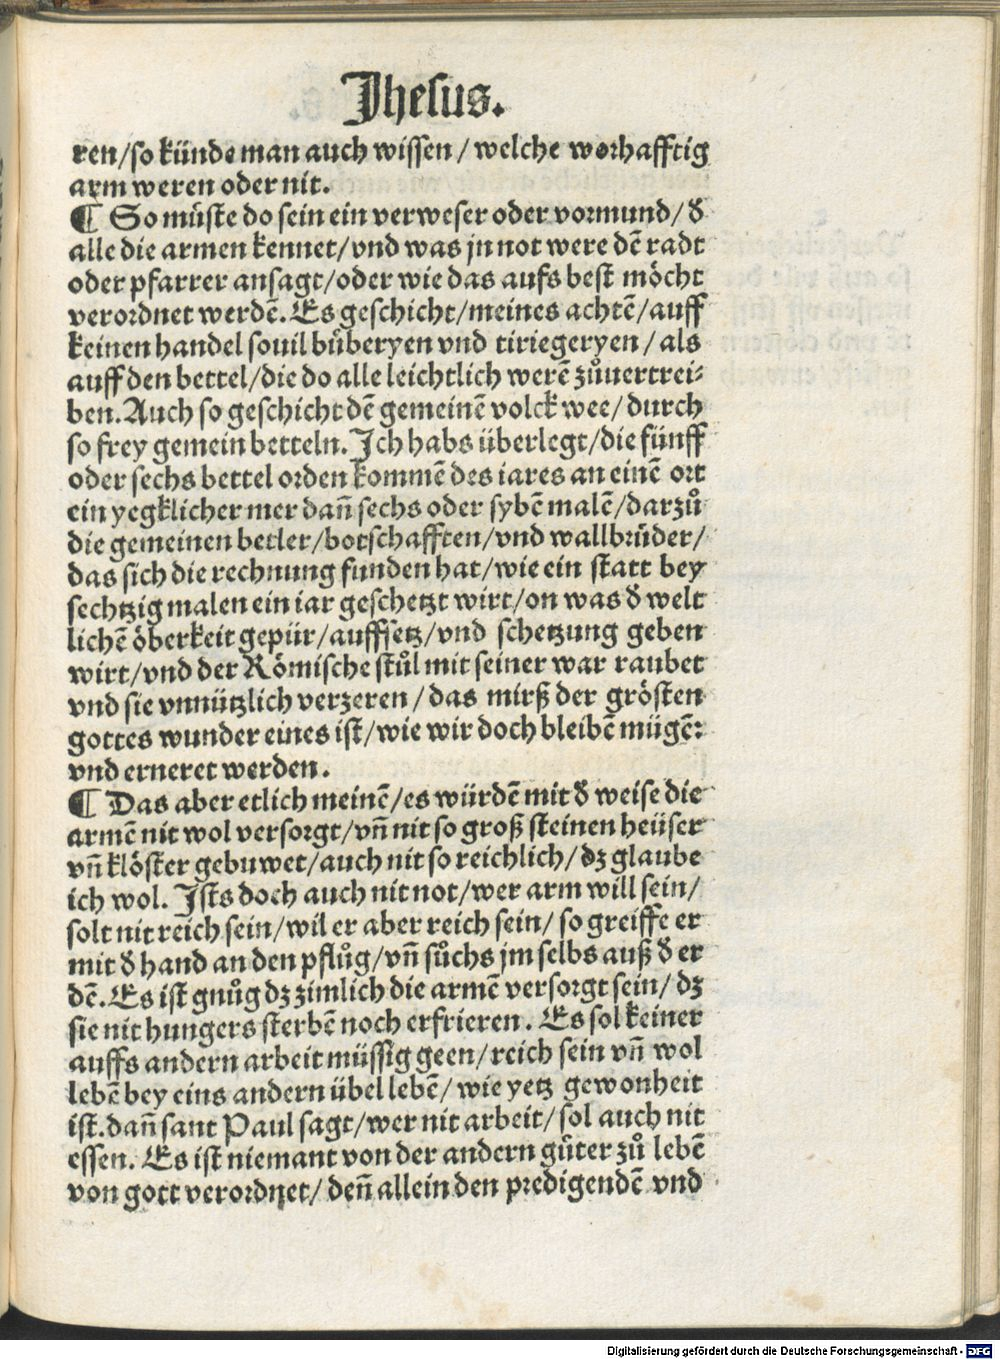 Jhesus.
ren/so künde man auch wissen/welche worhafftig
arm weren oder nit.
¶ So müste do sein ein verweser oder vormund/ď
alle die armen kennet/vnd was jn not were dē radt
oder pfarrer ansagt/oder wie das aufs best möcht
verordnet werdē. Es geschicht/meines achtē/auff
keinen handel souil bůberyen vnd tiriegeryen/als
auff den bettel/die do alle leichtlich werē zůuertrei⸗
ben. Auch so geschicht dē gemeinē volck wee/durch
so frey gemein betteln. Ich habs überlegt/die fünff
oder sechs bettel orden kommē des iares an einē ort
ein yegklicher mer dañ sechs oder sybē malē/darzů
die gemeinen betler/botschafften/vnd wallbrüder/
das sich die rechnung funden hat/wie ein statt bey
sechtzig malen ein iar geschetzt wirt/on was ď welt
lichē öberkeit gepür/auffsetz/vnd schetzung geben
wirt/vnd der Römische stůl mit seiner war raubet
vnd sie vnnützlich verzeren/das mirß der grösten
gottes wunder eines ist/wie wir doch bleibē mügē:
vnd erneret werden.
¶ Das aber etlich meinē/es würdē mit ď weise die
armē nit wol versorgt/vñ nit so groß steinen heüser
vñ klöster gebuwet/auch nit so reichlich/dz glaube
ich wol. Ists doch auch nit not/wer arm will sein/
solt nit reich sein/wil er aber reich sein/so greiffe er
mit ď hand an den pflůg/vñ sůchs jm selbs auß ď er
dē. Es ist gnůg dz zimlich die armē versorgt sein/dz
sie nit hungers sterbē noch erfrieren. Es sol keiner
auffs andern arbeit müssig geen/reich sein vñ wol
lebē bey eins andern übel lebē/wie yetz gewonheit
ist. dañ sant Paul sagt/wer nit arbeit/sol auch nit
essen. Es ist niemant von der andern gůter zů lebē
von gott verordnet/deñ allein den predigendē vnd
Digitalisierung gefördert durch die Deutsche Forschungsgemeinschaft - DFG